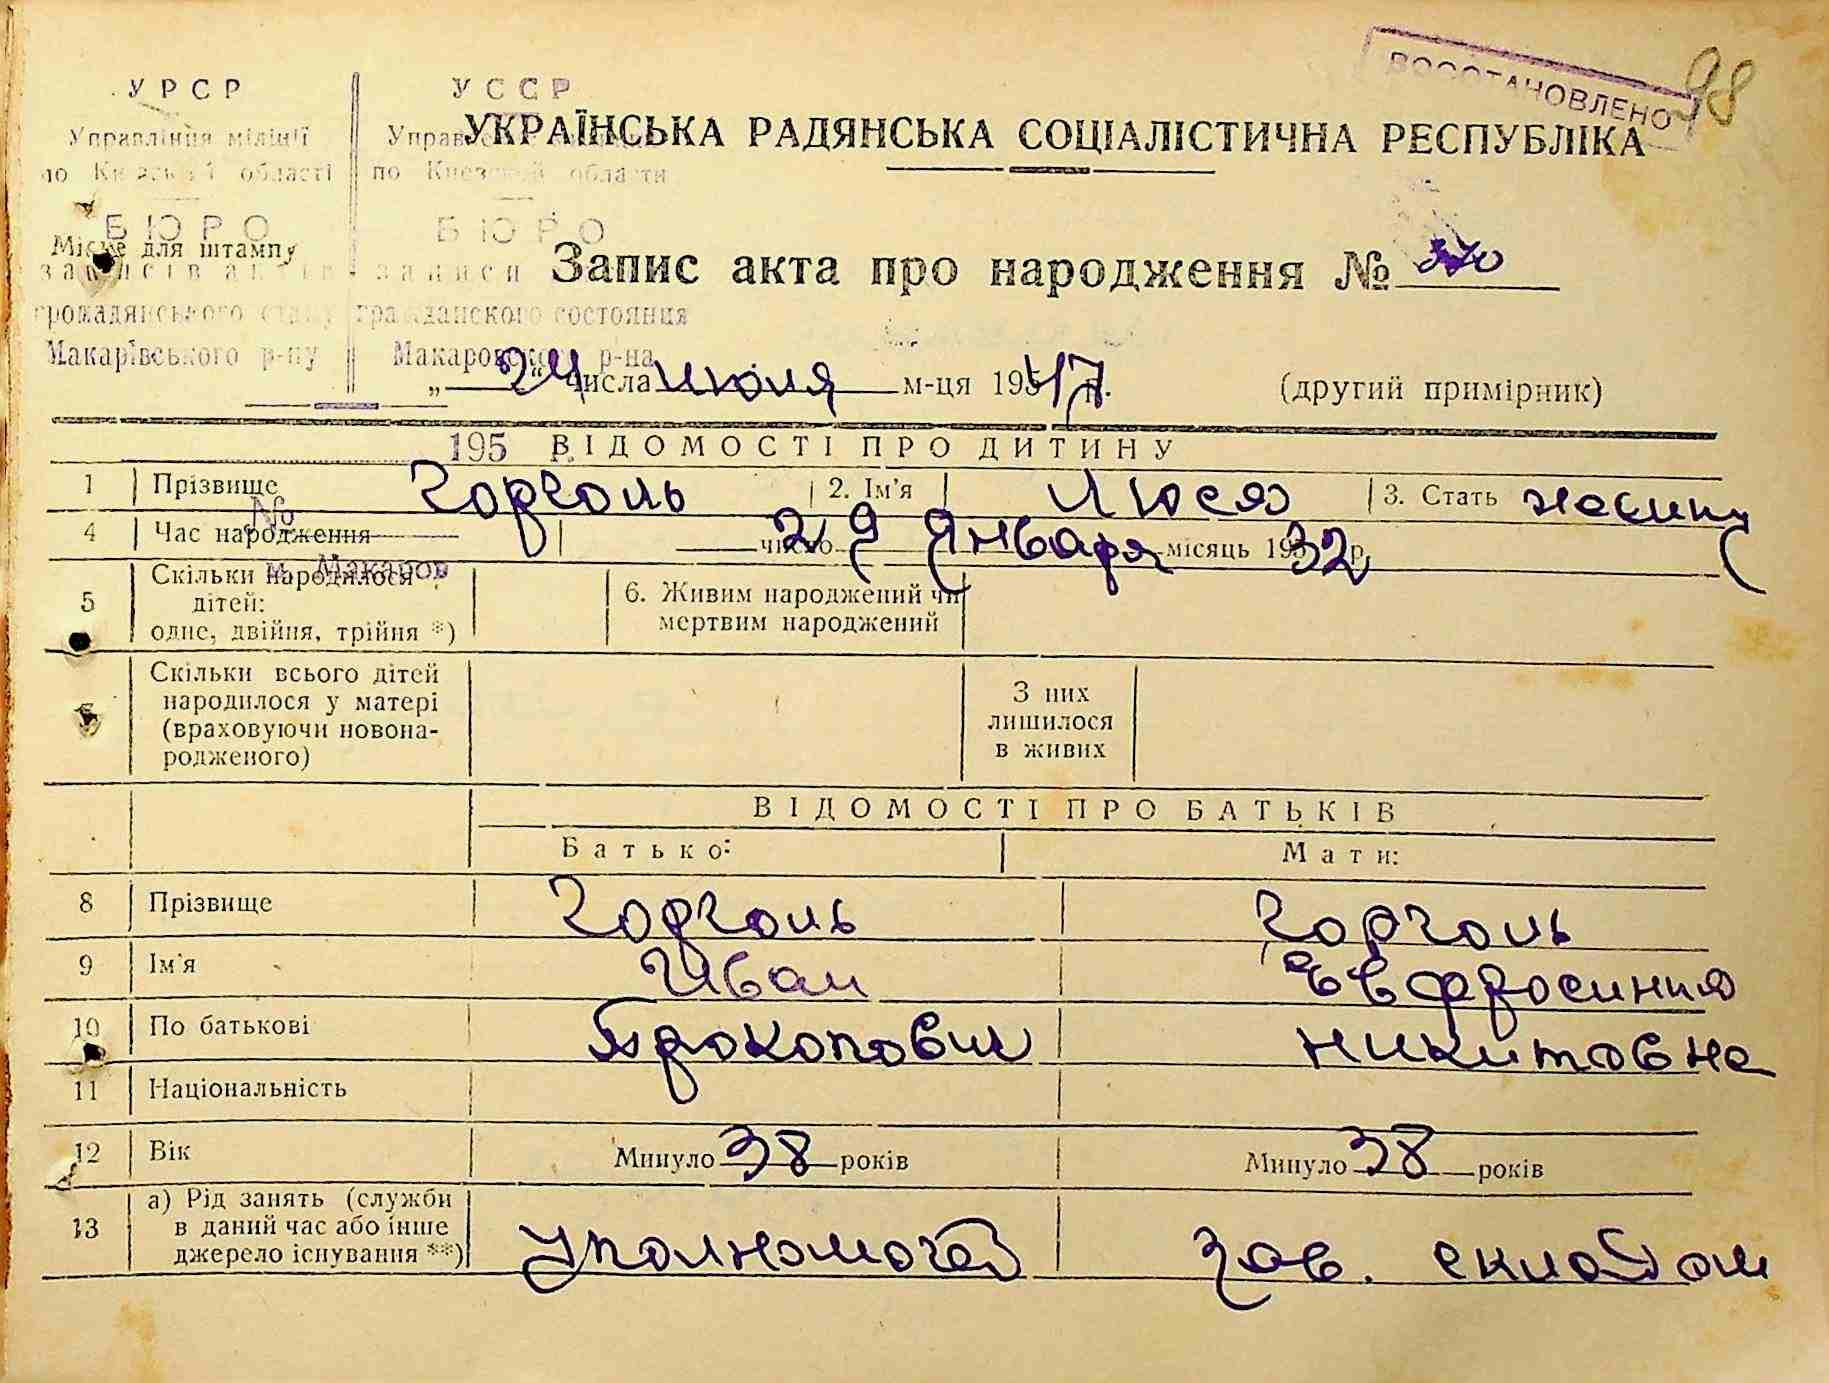 ВОССТАНОВЛЕНО
98
УРСР УССР
УКРАЇНСЬКА РАДЯНСЬКА СОЦІАЛІСТИЧНА РЕСПУБЛІКА
Управління міліції
по Київській області по Киевской области
БЮРО БЮРО
Місце для штампу
записів актів записи
Запис акта про народження № 370
громадянського стану гражданского состояния
Макарівського р-ну Макаровского р-на
„24“ числа июля м-ця 1947 р. (другий примірник)
195 р.
ВІДОМОСТІ ПРО ДИТИНУ
1 Прізвище Горголь 2. Ім'я Люся 3. Стать женщ
№
4 Час народження число 29 Января місяць 1932 р.
м. Макаров
5 Скільки народилося
дітей:
одне, двійня, трійня *)
6. Живим народжений чи
мертвим народжений
Скільки всього дітей
народилося у матері
(враховуючи новона-
родженого)
З них
лишилося
в живих
ВІДОМОСТІ ПРО БАТЬКІВ
Батько: Мати:
8 Прізвище Горголь Горголь
9 Ім'я Иван Евфросиния
10 По батькові Прокопович Никитовна
11 Національність
12 Вік Минуло 38 років Минуло 38 років
13 а) Рід занять (служби
в даний час або інше
джерело існування **)
Уполномоч зав. складом